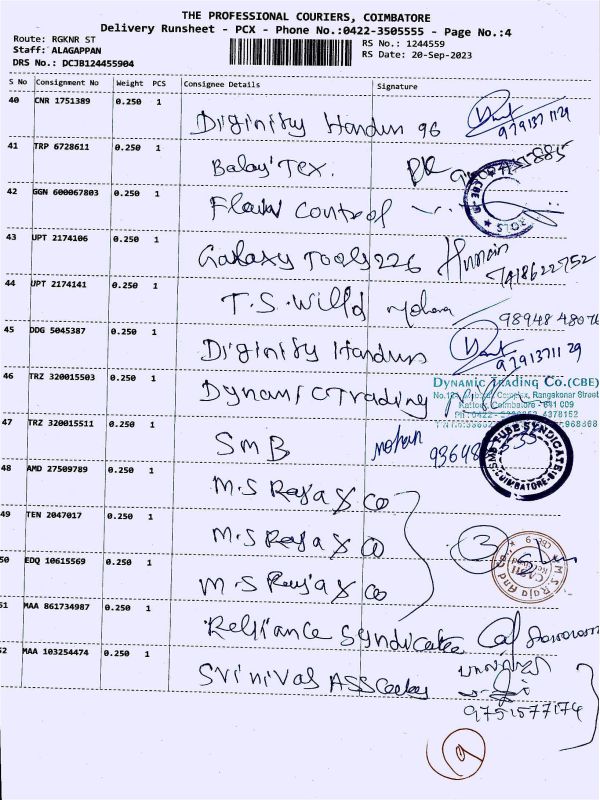 THE PROFESSIONAL COURIERS, COIMBATORE
Delivery Runsheet - PCX - Phone No.:0422-3505555 - Page No.:4
Route: RGKNR ST
Staff: ALAGAPPAN
DRS No.: DCJB124455904
RS No.: 1244559
RS Date: 20-Sep-2023
S No Consignment No Weight PCS Consignee Details Signature
40 CNR 1751389 0.250 1 Diginity Handun 96
9791371129
41 TRP 6728611 0.250 1 Balaji Tex.
42 GGN 600067803 0.250 1 Flow Control
43 UPT 2174106 0.250 1 Galaxy Tools 226 Hussain
7418622752
44 UPT 2174141 0.250 1 T.S. Willd Mohana
98948 48076
45 DDG 5045387 0.250 1 Diginity Handun
9791371129
46 TRZ 320015503 0.250 1 Dynamic Trading
DYNAMIC TRADING CO.(CBE)
Complex, Rangakonar Street
Coimbatore - 641 009
47 TRZ 320015511 0.250 1 SMB Mohan
TUBE SYNDICATE
COIMBATORE
48 AMD 27509789 0.250 1 M.S Raja & Co
49 TEN 2047017 0.250 1 M.S Raja & Co
3
50 EDQ 10615569 0.250 1 M.S Raja & Co
51 MAA 861734987 0.250 1 Reliance Syndicate
52 MAA 103254474 0.250 1 Srinivas
9751577174
9